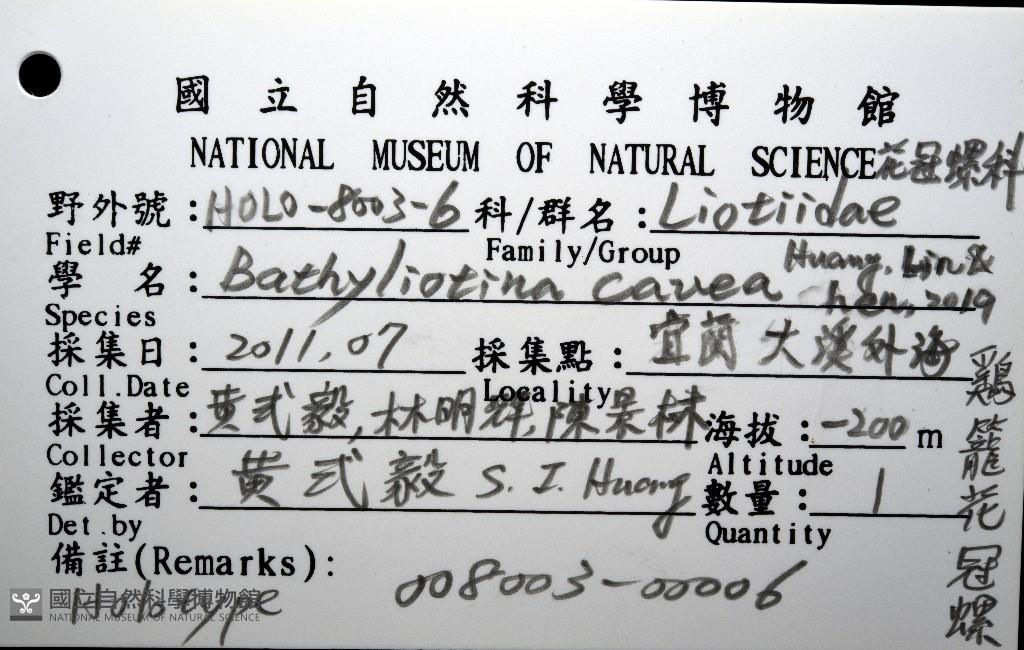 國立自然科學博物館
NATIONAL MUSEUM OF NATURAL SCIENCE 花冠螺科
野外號：HOLO-8003-6 科/群名：Liotiidae
Field# Family/Group
學名：Bathyliotina cavea Huang, Lin &
Species hen, 2019
採集日：2011.07 採集點：宜蘭 大溪外海
Coll.Date Locality
採集者：黃式毅,林明輝,陳杲 海拔：-200 m
Collector Altitude
鑑定者：黃式毅 S. I. Huang 數量：1
Det.by Quantity
備註(Remarks):
Holotype 008003-00006
雞籠花冠螺
國立自然科學博物館
NATIONAL MUSEUM OF NATURAL SCIENCE